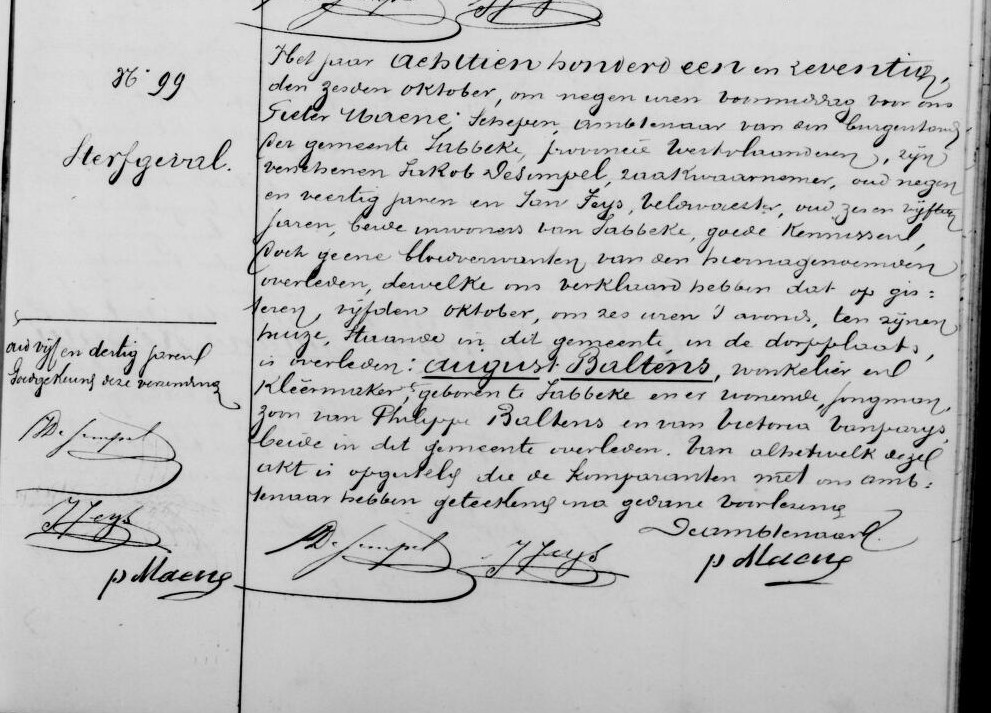 N° 99
Sterfgeval.
Het jaar achttien honderd een en zeventig,
den zesden oktober, om negen uren voormiddag voor ons
Pieter Maene, Schepen, ambtenaar van den burgerstand
der gemeente Jabbeke, provincie Westvlaanderen, zijn
verschenen Jakob Desimpel, zaakwaarnemer, oud negen
en veertig jaren en Jan Feys, veldwachter, oud zes en vijftig
jaren, beide inwoners van Jabbeke, goede kennissen,
doch geene bloedverwanten van den hiernagenoemden
overleden, dewelke ons verklaard hebben dat op gis=
teren, vijfden oktober, om zes uren 's avonds, ten zijnen
huize, staande in dit gemeente in de dorpplaats,
is overleden: august Baltens, winkelier en
kleermaker, geboren te Jabbeke en er wonende, jongman,
zoon van Philippe Baltens en van Victoria Vanparys,
beide in dit gemeente overleden. Van alhetwelk deze
akt is opgesteld die de komparanten met ons amb=
tenaar hebben geteekend na gedane voorlezing
De ambtenaar
Desimpel J Feys p Maene
oud vijf en dertig jaren
Goedgekeurd deze verzending
Desimpel
J Feys
p Maene